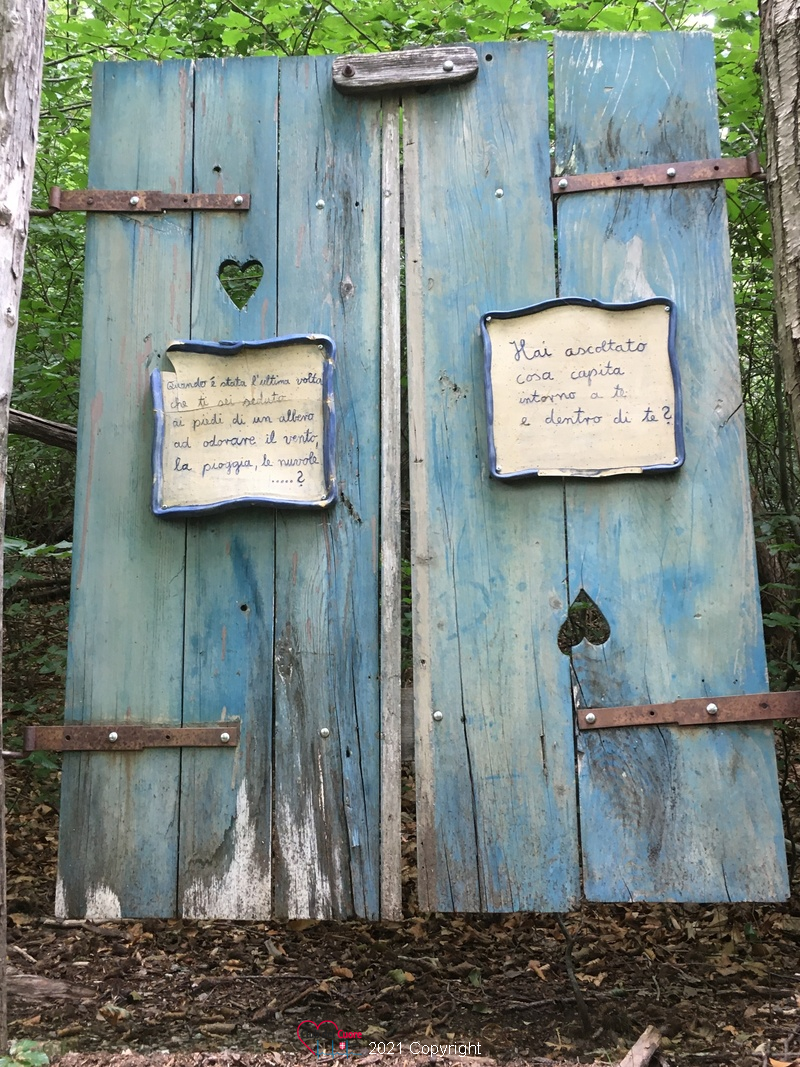 Quando é stata l'ultima volta
che ti sei seduto
ai piedi di un albero
ad odorare il vento,
la pioggia, le nuvole
.....?
Hai ascoltato
cosa capita
intorno a te
e dentro di te?
2021 Copyright